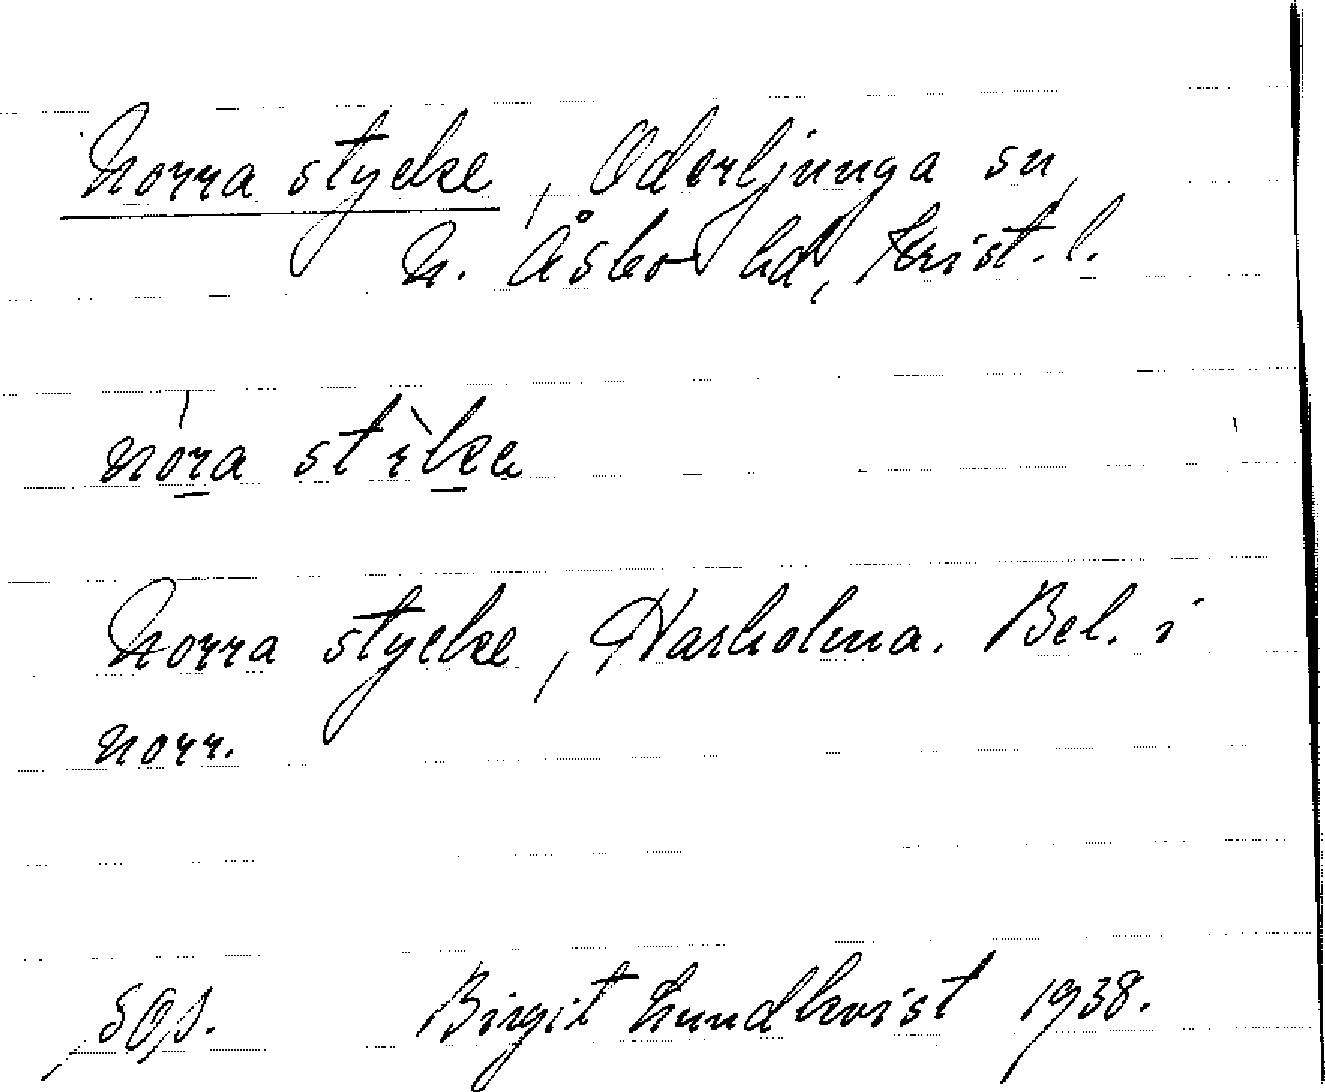 Norra stycke, Oderljunga sn,
N. Åsbo hd, Krist. l.
Norra stycke, Harholma. Bel. i
norr.
Birgit Lundkvist 1938.